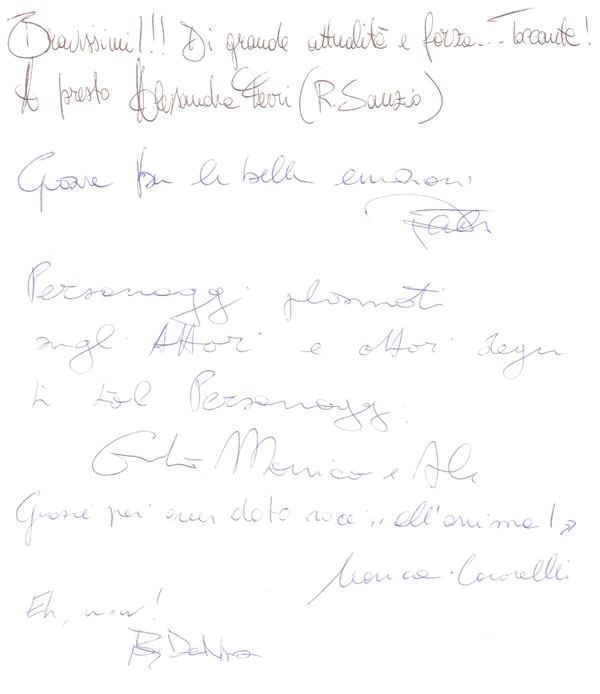 Bravissimi!!! Di grande attualità e forza... Toccante!
A presto Alessandra Fevri (R. Sanzio)
Grazie per le belle emozioni
Personaggi plasmati
sugli Attori e attori degni
di tal Personaggi.
Monica e Ale
Grazie per aver dato voce "all'anima!"
Monica
Eh, wow!